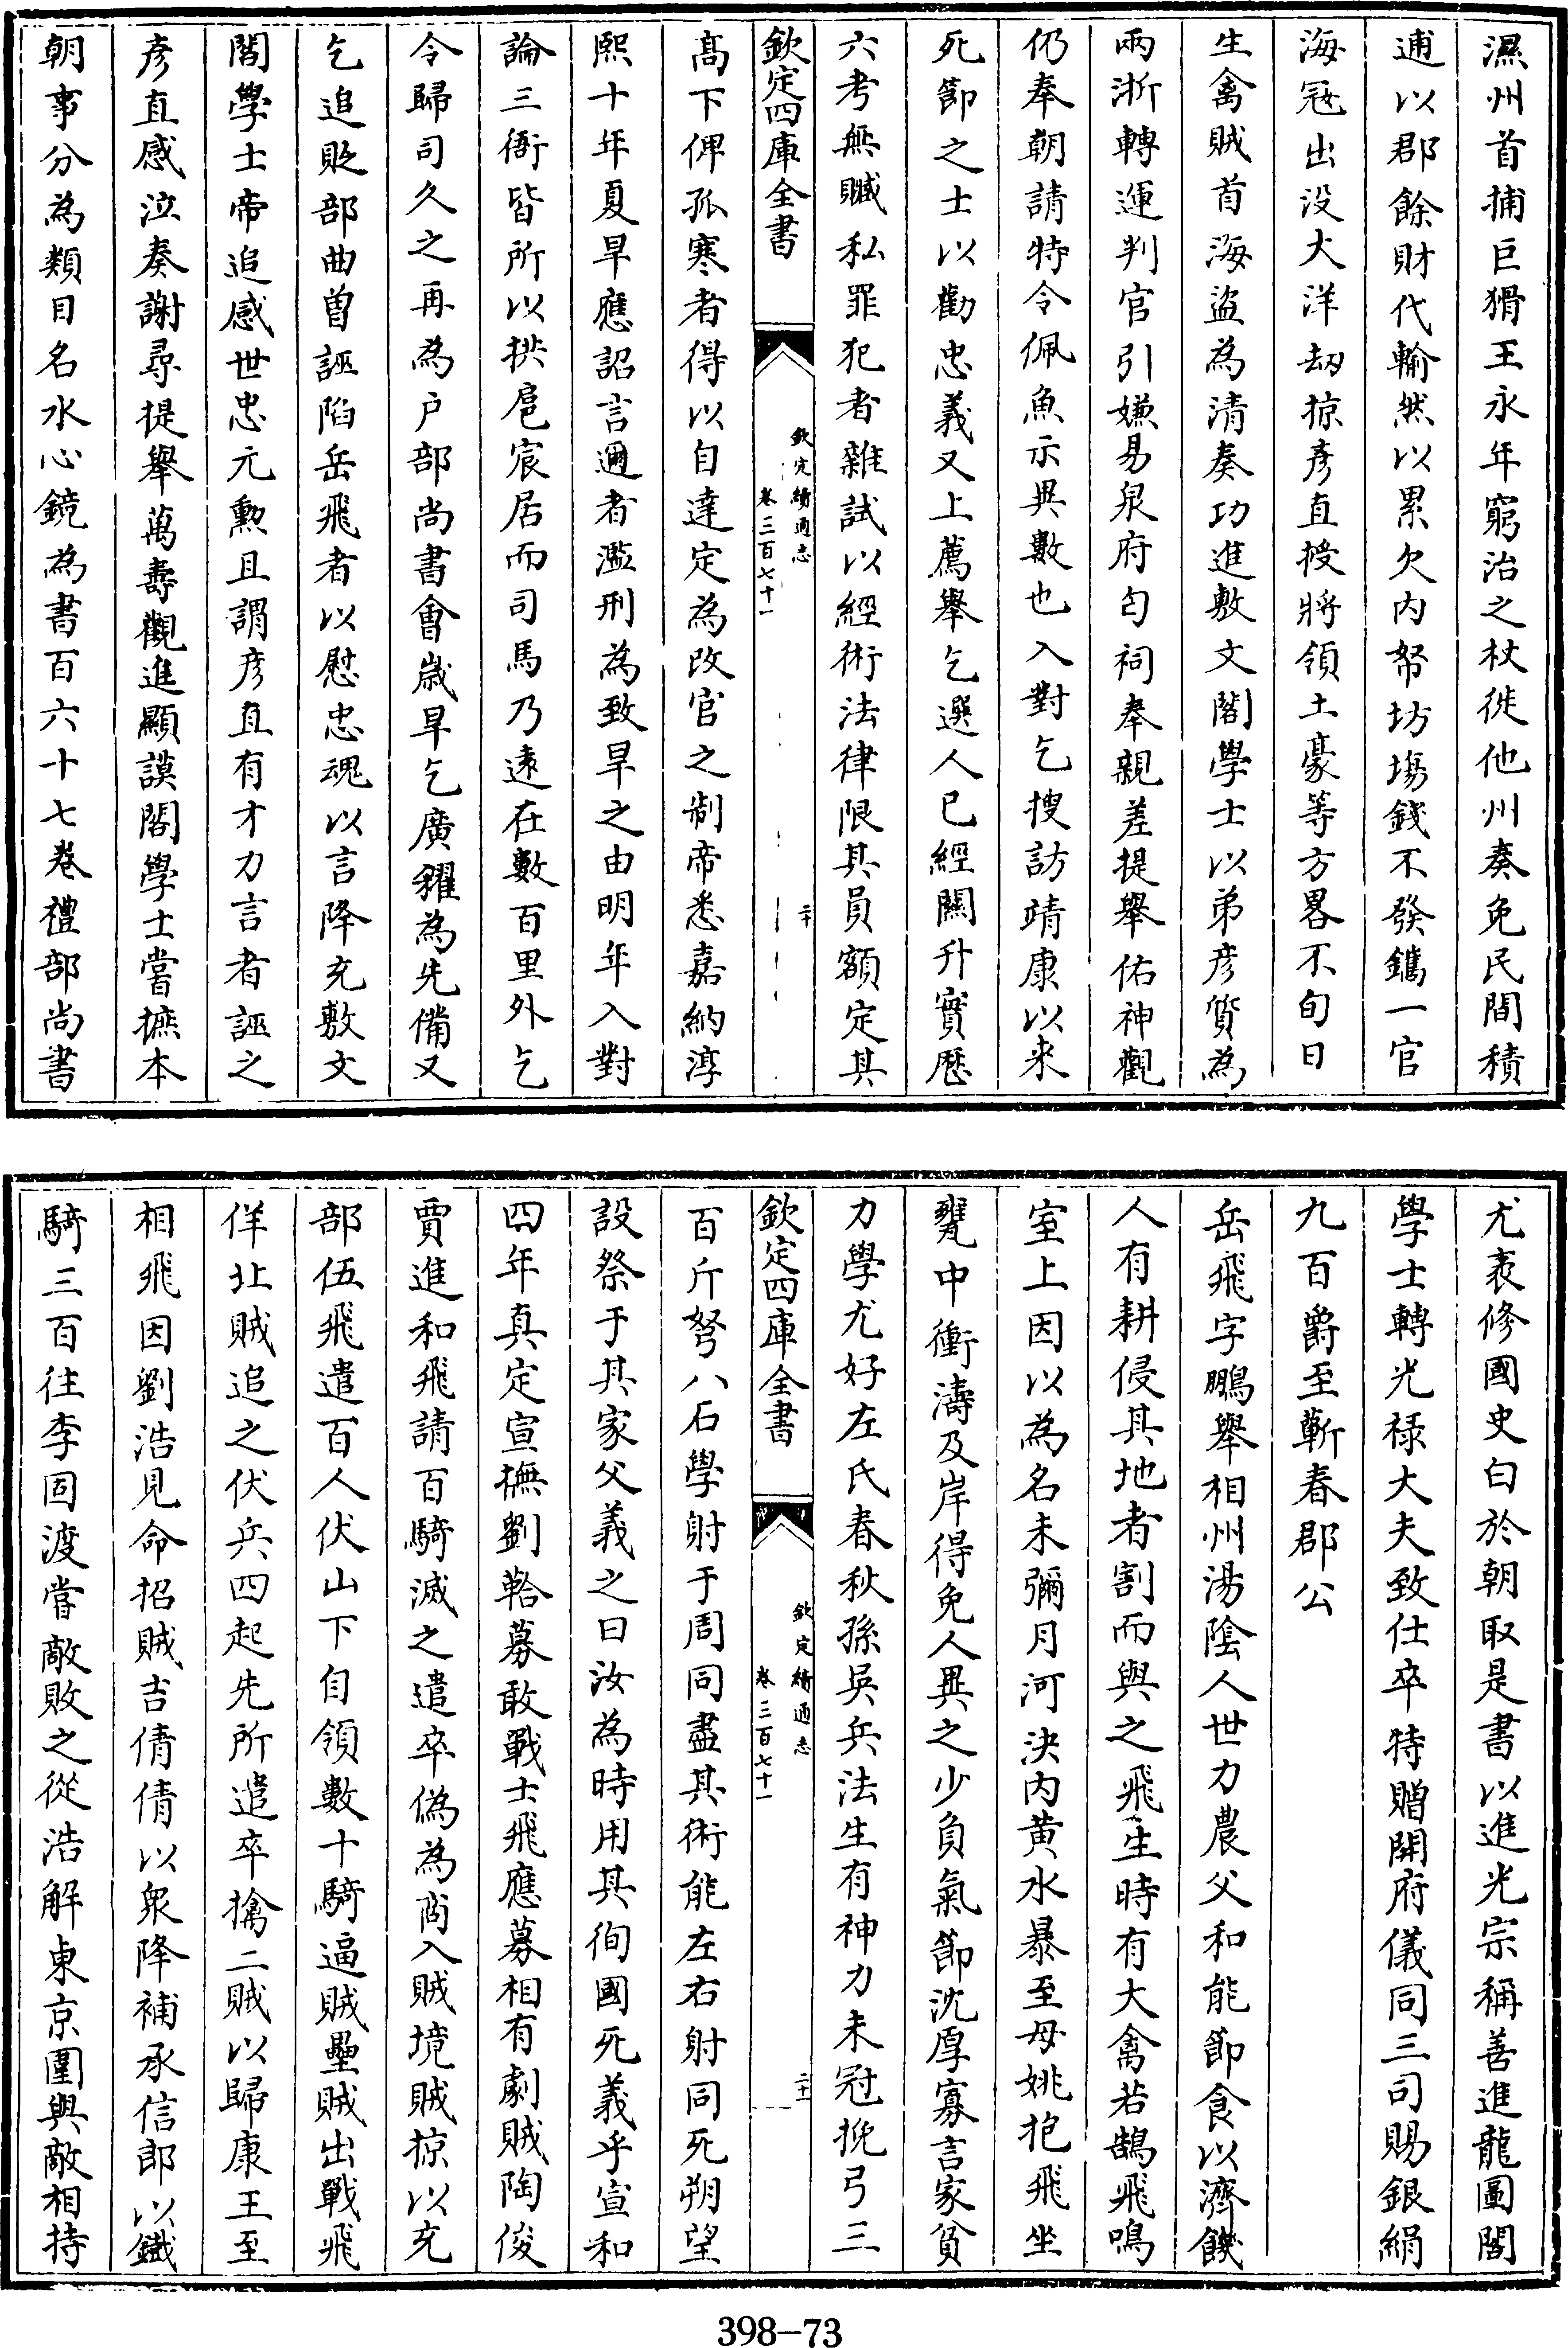 濕州首捕巨猾王永年窮治之杖徙他州奏免民間積
逋以郡餘財代輸然以累欠内帑坊塲錢不發鐫一官
海冦出没大洋刼掠彦直授將領土豪等方畧不旬日
生禽賊首海盜為清奏功進敷文閣學士以弟彦質為
兩浙轉運判官引嫌易泉府匄祠奉親差提舉佑神觀
仍奉朝請特令佩魚示異數也入對乞搜訪靖康以来
死節之士以勸忠義又上薦舉乞選人已經闗升實歴
六考無贓私罪犯者雜試以經術法律限其員額定其
欽定四庫全書
欽定續通志
卷三百七十一
二十
髙下俾孤寒者得以自達定為改官之制帝悉嘉納淳
熙十年夏旱應詔言邇者濫刑為致旱之由明年入對
論三衙皆所以拱扈宸居而司馬乃逺在數百里外乞
令歸司久之再為户部尚書會歳旱乞廣糴為先備又
乞追貶部曲曽誣陷岳飛者以慰忠魂以言降充敷文
閣學士帝追感世忠元勲且謂彦直有才力言者誣之
彦直感泣奏謝尋提舉萬壽觀進顯謨閣學士嘗摭本
朝事分為類目名水心鏡為書百六十七巻禮部尚書
尤袤修國史白於朝取是書以進光宗稱善進龍圖閣
學士轉光禄大夫致仕卒特贈開府儀同三司賜銀絹
九百爵至蘄春郡公
岳飛字鵬舉相州湯隂人世力農父和能節食以濟饑
人有耕侵其地者割而與之飛生時有大禽若鵠飛鳴
室上因以為名未彌月河決内黄水暴至母姚抱飛坐
甕中衝濤及岸得免人異之少負氣節沈厚寡言家貧
力學尤好左氏春秋孫吳兵法生有神力未冠挽弓三
欽定四庫全書
欽定續通志
卷三百七十一
二十一
百斤弩八石學射于周同盡其術能左右射同死朔望
設祭于其家父義之曰汝為時用其徇國死義乎宣和
四年真定宣撫劉韐募敢戰士飛應募相有劇賊陶俊
賈進和飛請百騎滅之遣卒偽為商入賊境賊掠以充
部伍飛遣百人伏山下自領數十騎逼賊壘賊出戰飛
佯北賊追之伏兵四起先所遣卒擒二賊以歸康王至
相飛因劉浩見命招賊吉倩倩以衆降補承信郎以鐵
騎三百往李固渡嘗敵敗之從浩解東京圍與敵相持
398-73